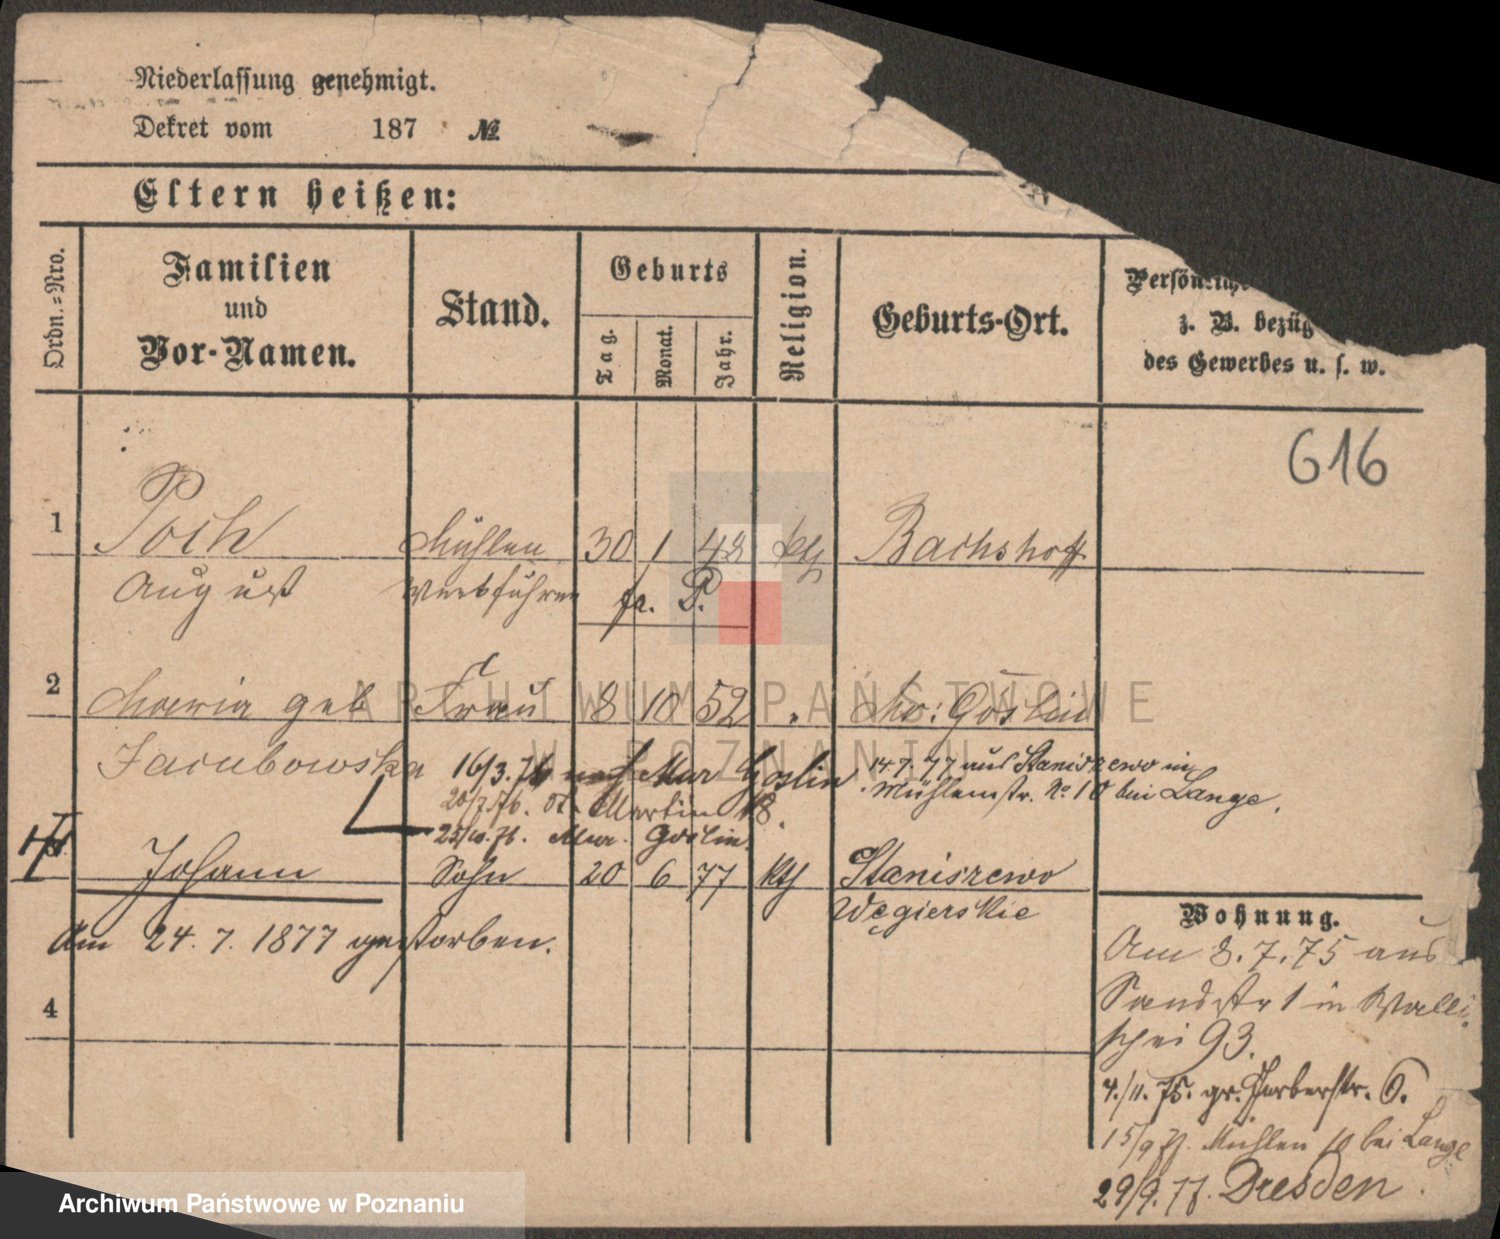 Niederlassung genehmigt.
Dekret vom 187 №
Eltern heißen:
Ordn.=Nro.
Familien
und
Vor-Namen.
Stand.
Geburts
Tag.
Monat.
Jahr.
Religion.
Geburts-Ort.
z. B. bezüg
des Gewerbes u. s. w.
616
1 Poch Mühlen 30 1 48 kth Bachshoff
August Werkführer fr. P.
2 Maria geb Frau 8 10 52 " Mur: Goslin
Jacubowska 16/3.76 nach Mur Goslin 14 7. 77 aus Staniszewo in
Mühlenstr. No 10 bei Lange.
20/7.76. St. Martin 18.
25/10.76. Mur. Goslin.
Johann Sohn 20 6 77 kth Staniszewo
Węgierskie
Am 24. 7. 1877 gestorben.
4
Wohnung.
Am 8.7.75 aus
Sandstr 1 in Walli
schei 93.
4./11. 75. gr. Gerberstr. 6.
15/9 77. Mühlen 10 bei Lange
29/9. 77. Dresden.
ARCHIWUM PAŃSTWOWE
W POZNANIU
Archiwum Państwowe w Poznaniu